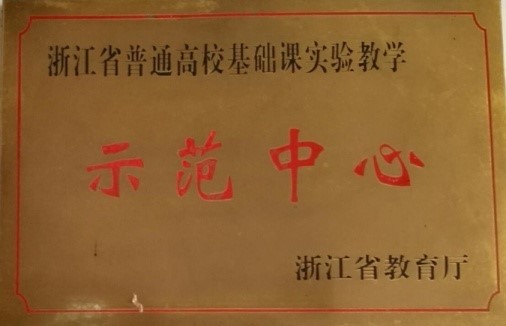 浙江省普通高校基础课实验教学
示范中心
浙江省教育厅